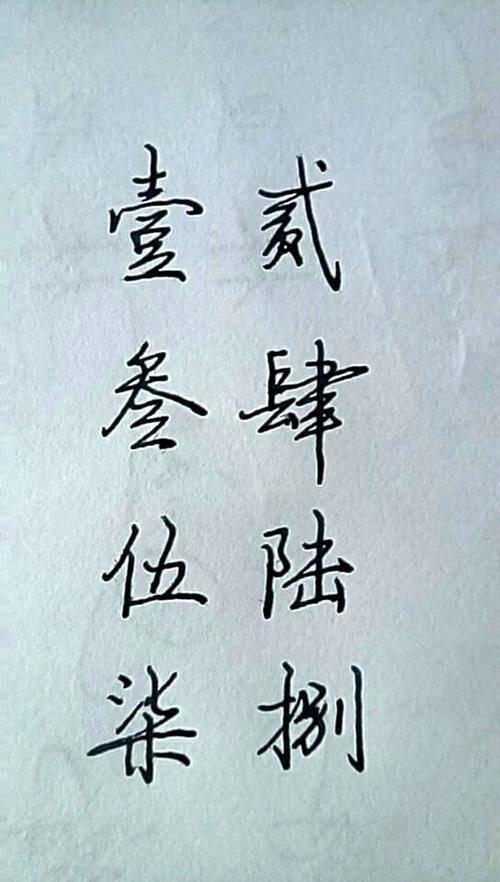 壹贰
叁肆
伍陆
柒捌